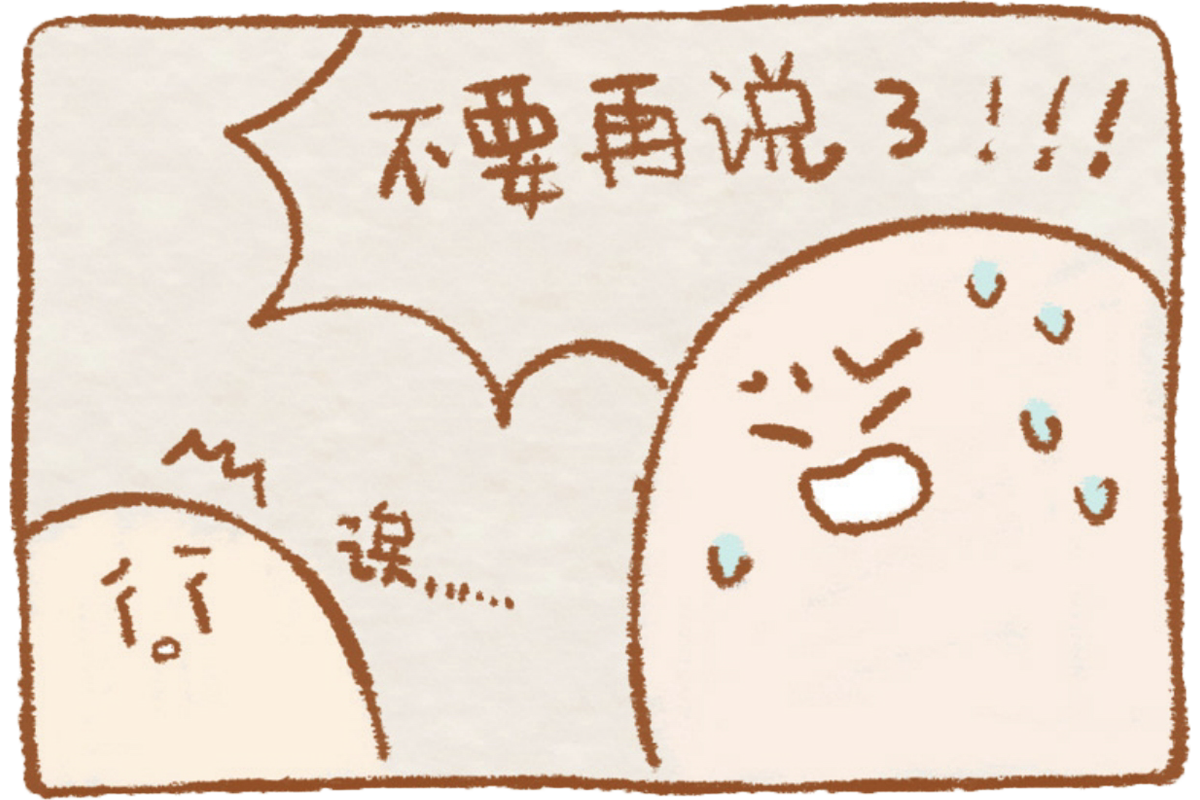 不要再说了!!!
诶......